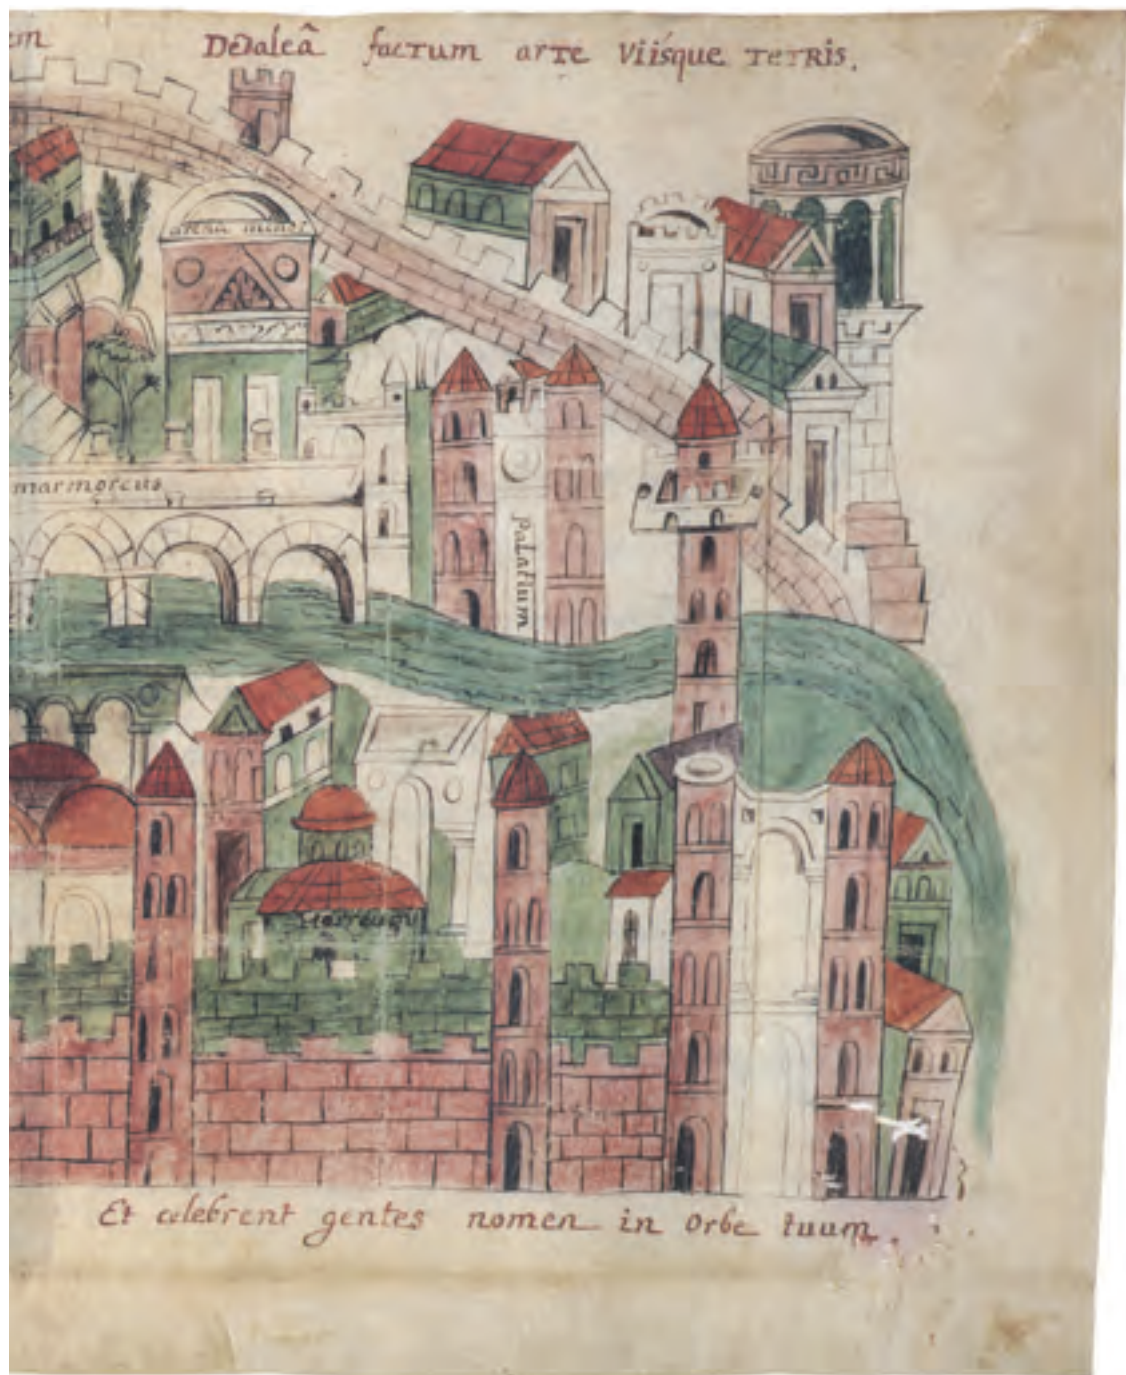 em Dedaleã factum arte viísque tetris.
arena minor
marmoreus
Palatium
Horreum
Et celebrent gentes nomen in orbe tuum.